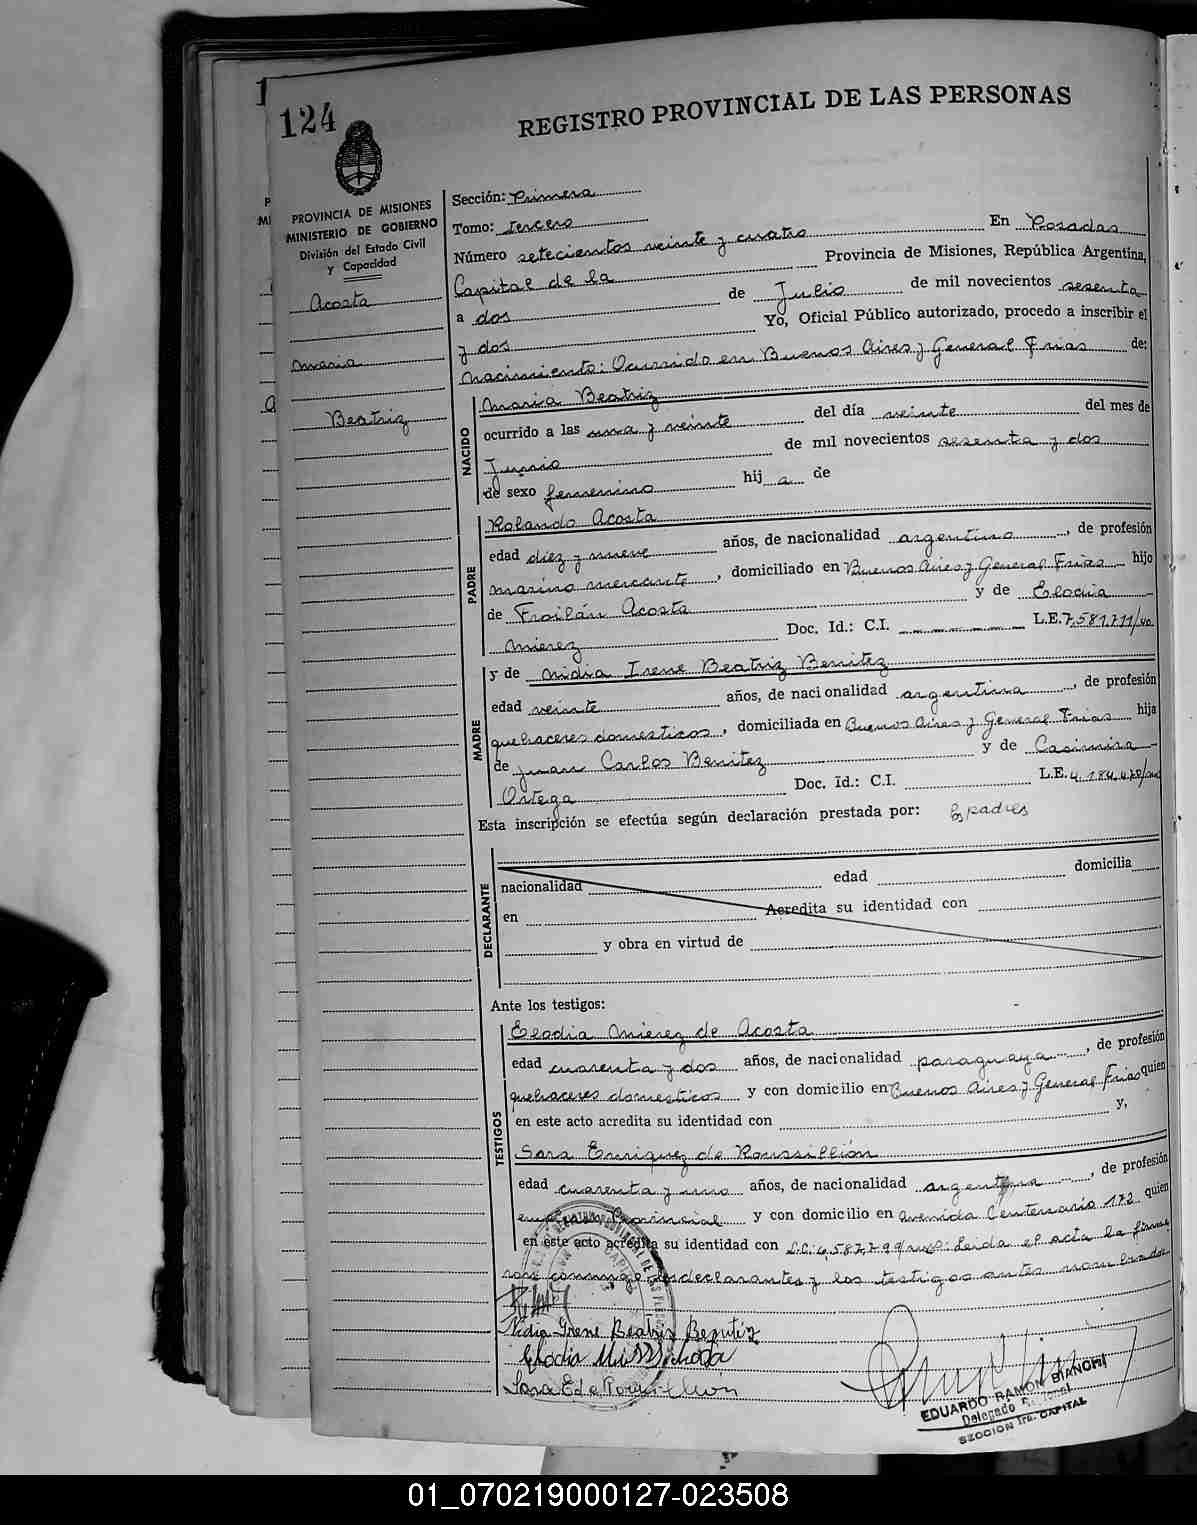 124
REGISTRO PROVINCIAL DE LAS PERSONAS
PROVINCIA DE MISIONES
MINISTERIO DE GOBIERNO
División del Estado Civil
y Capacidad
Acosta
Maria
Beatriz
Sección: Primera
Tomo: tercero
Número setecientos veinte y cuatro En Posadas
Capital de la Provincia de Misiones, República Argentina,
a dos de Julio de mil novecientos sesenta
y dos Yo, Oficial Público autorizado, procedo a inscribir el
nacimiento: Ocurrido en Buenos Aires y General Frias de:
NACIDO
Maria Beatriz
ocurrido a las una y veinte del día veinte del mes de
Junio de mil novecientos sesenta y dos
de sexo femenino hij a de
PADRE
Rolando Acosta
edad diez y nueve años, de nacionalidad argentino, de profesión
marino mercante, domiciliado en Buenos Aires y General Frias hijo
de Froilán Acosta y de Elodia
Mierez Doc. Id.: C.I. L.E. 7.581.711/
MADRE
y de Nidia Irene Beatriz Benitez
edad veinte años, de nacionalidad argentina, de profesión
quehaceres domesticos, domiciliada en Buenos Aires y General Frias hija
de Juan Carlos Benitez y de Casimira
Ortega Doc. Id.: C.I. L.E. 4.184.470/
Esta inscripción se efectúa según declaración prestada por: los padres
DECLARANTE
nacionalidad edad domicilia
en Acredita su identidad con
y obra en virtud de
Ante los testigos:
TESTIGOS
Elodia Mierez de Acosta
edad cuarenta y dos años, de nacionalidad paraguaya, de profesión
quehaceres domesticos y con domicilio en Buenos Aires y General Frias quien
en este acto acredita su identidad con y,
Sara Enriquez de Roussillión
edad cuarenta y uno años, de nacionalidad argentina, de profesión
Provincial y con domicilio en avenida Centenario 172 quien
en este acto acredita su identidad con L.C: 6.587.799/ Leida el acta la firma
ron conmigo los declarantes y los testigos antes nombrados
Nidia Irene Beatriz Benitez
Elodia
Sara E de Roussillión
EDUARDO RAMON BIANCHI
Delegado Regional
SECCION 1ra. CAPITAL
01_070219000127-023508